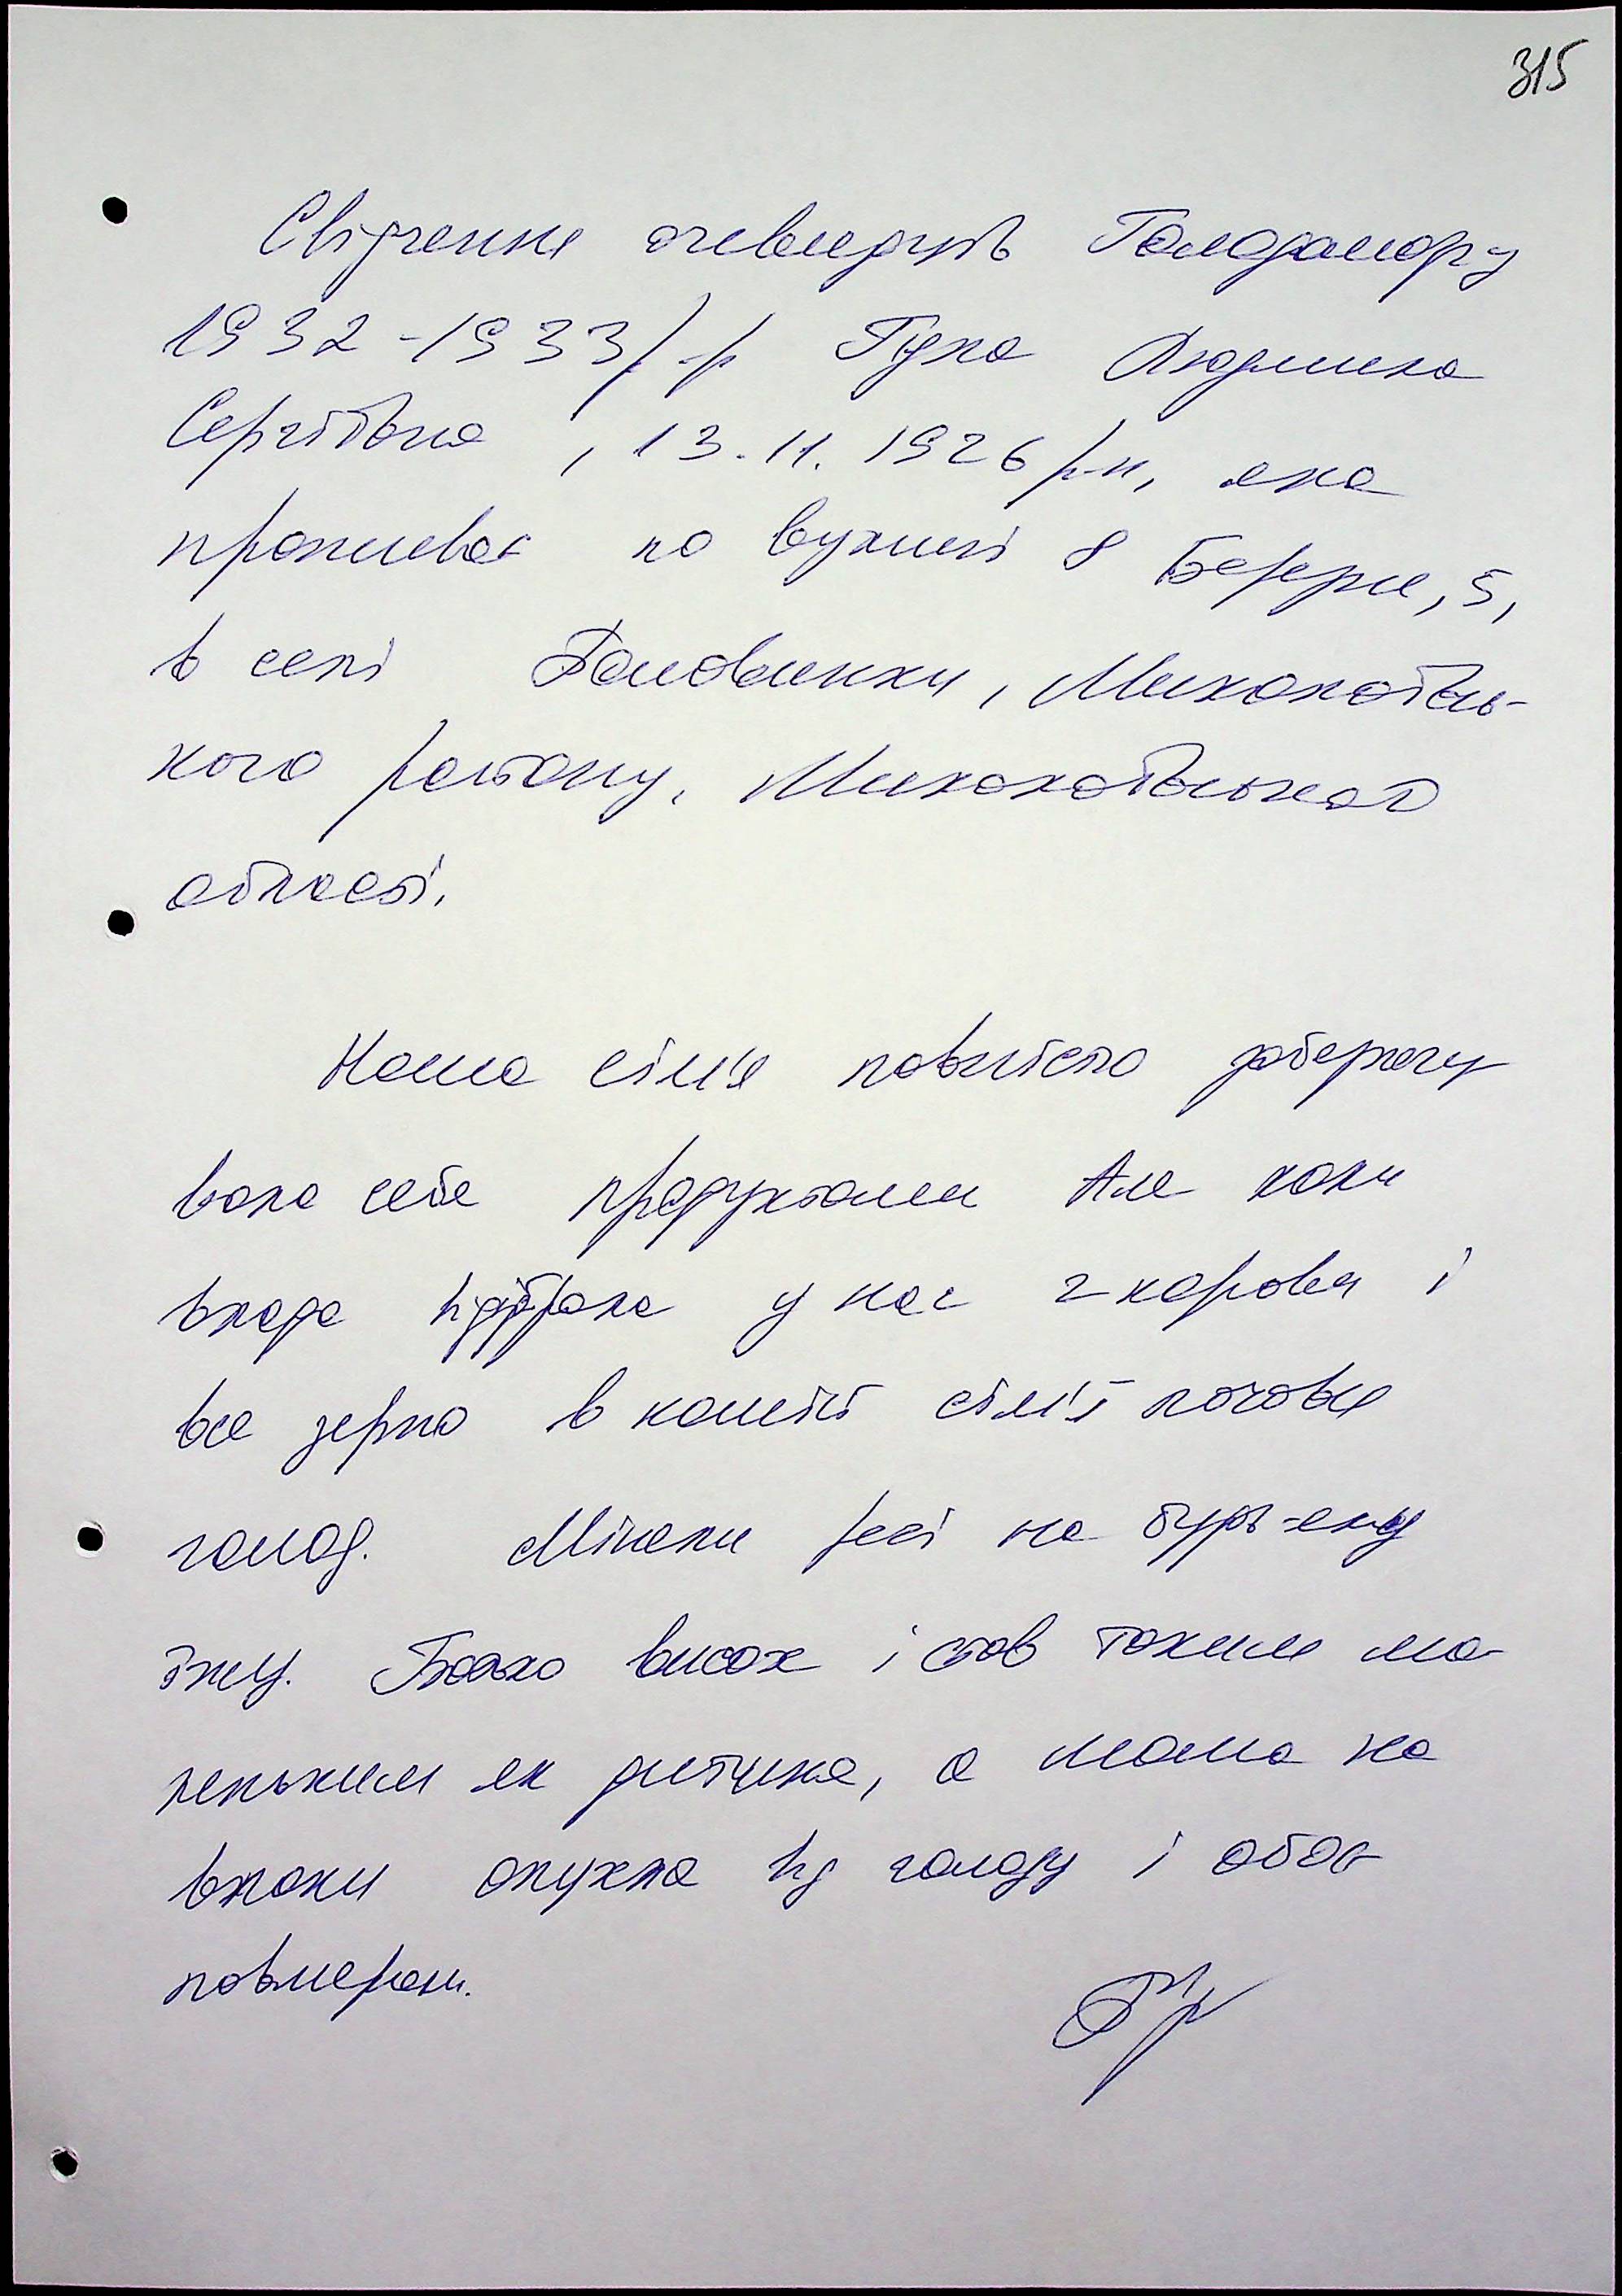 315
Свідчення очевидців Голодомору
1932-1933 р-р Гука Людмила
Сергіївна, 13.11.1926 р.н, яка
проживає по вулиці 8 Березня, 5,
в селі Миколаївсь-
кого району, Миколаївської
області.
Наша сім'я повністю забезпечу
вала себе продуктами Але коли
влада відібрала у нас 2 корови і
все зерно в нашій сім'ї почався
голод. Міняли речі на будь-яку
їжу. Батько висох і став таким ма-
леньким як дитина, а мама на
впаки опухла від голоду і обоє
повмерали.